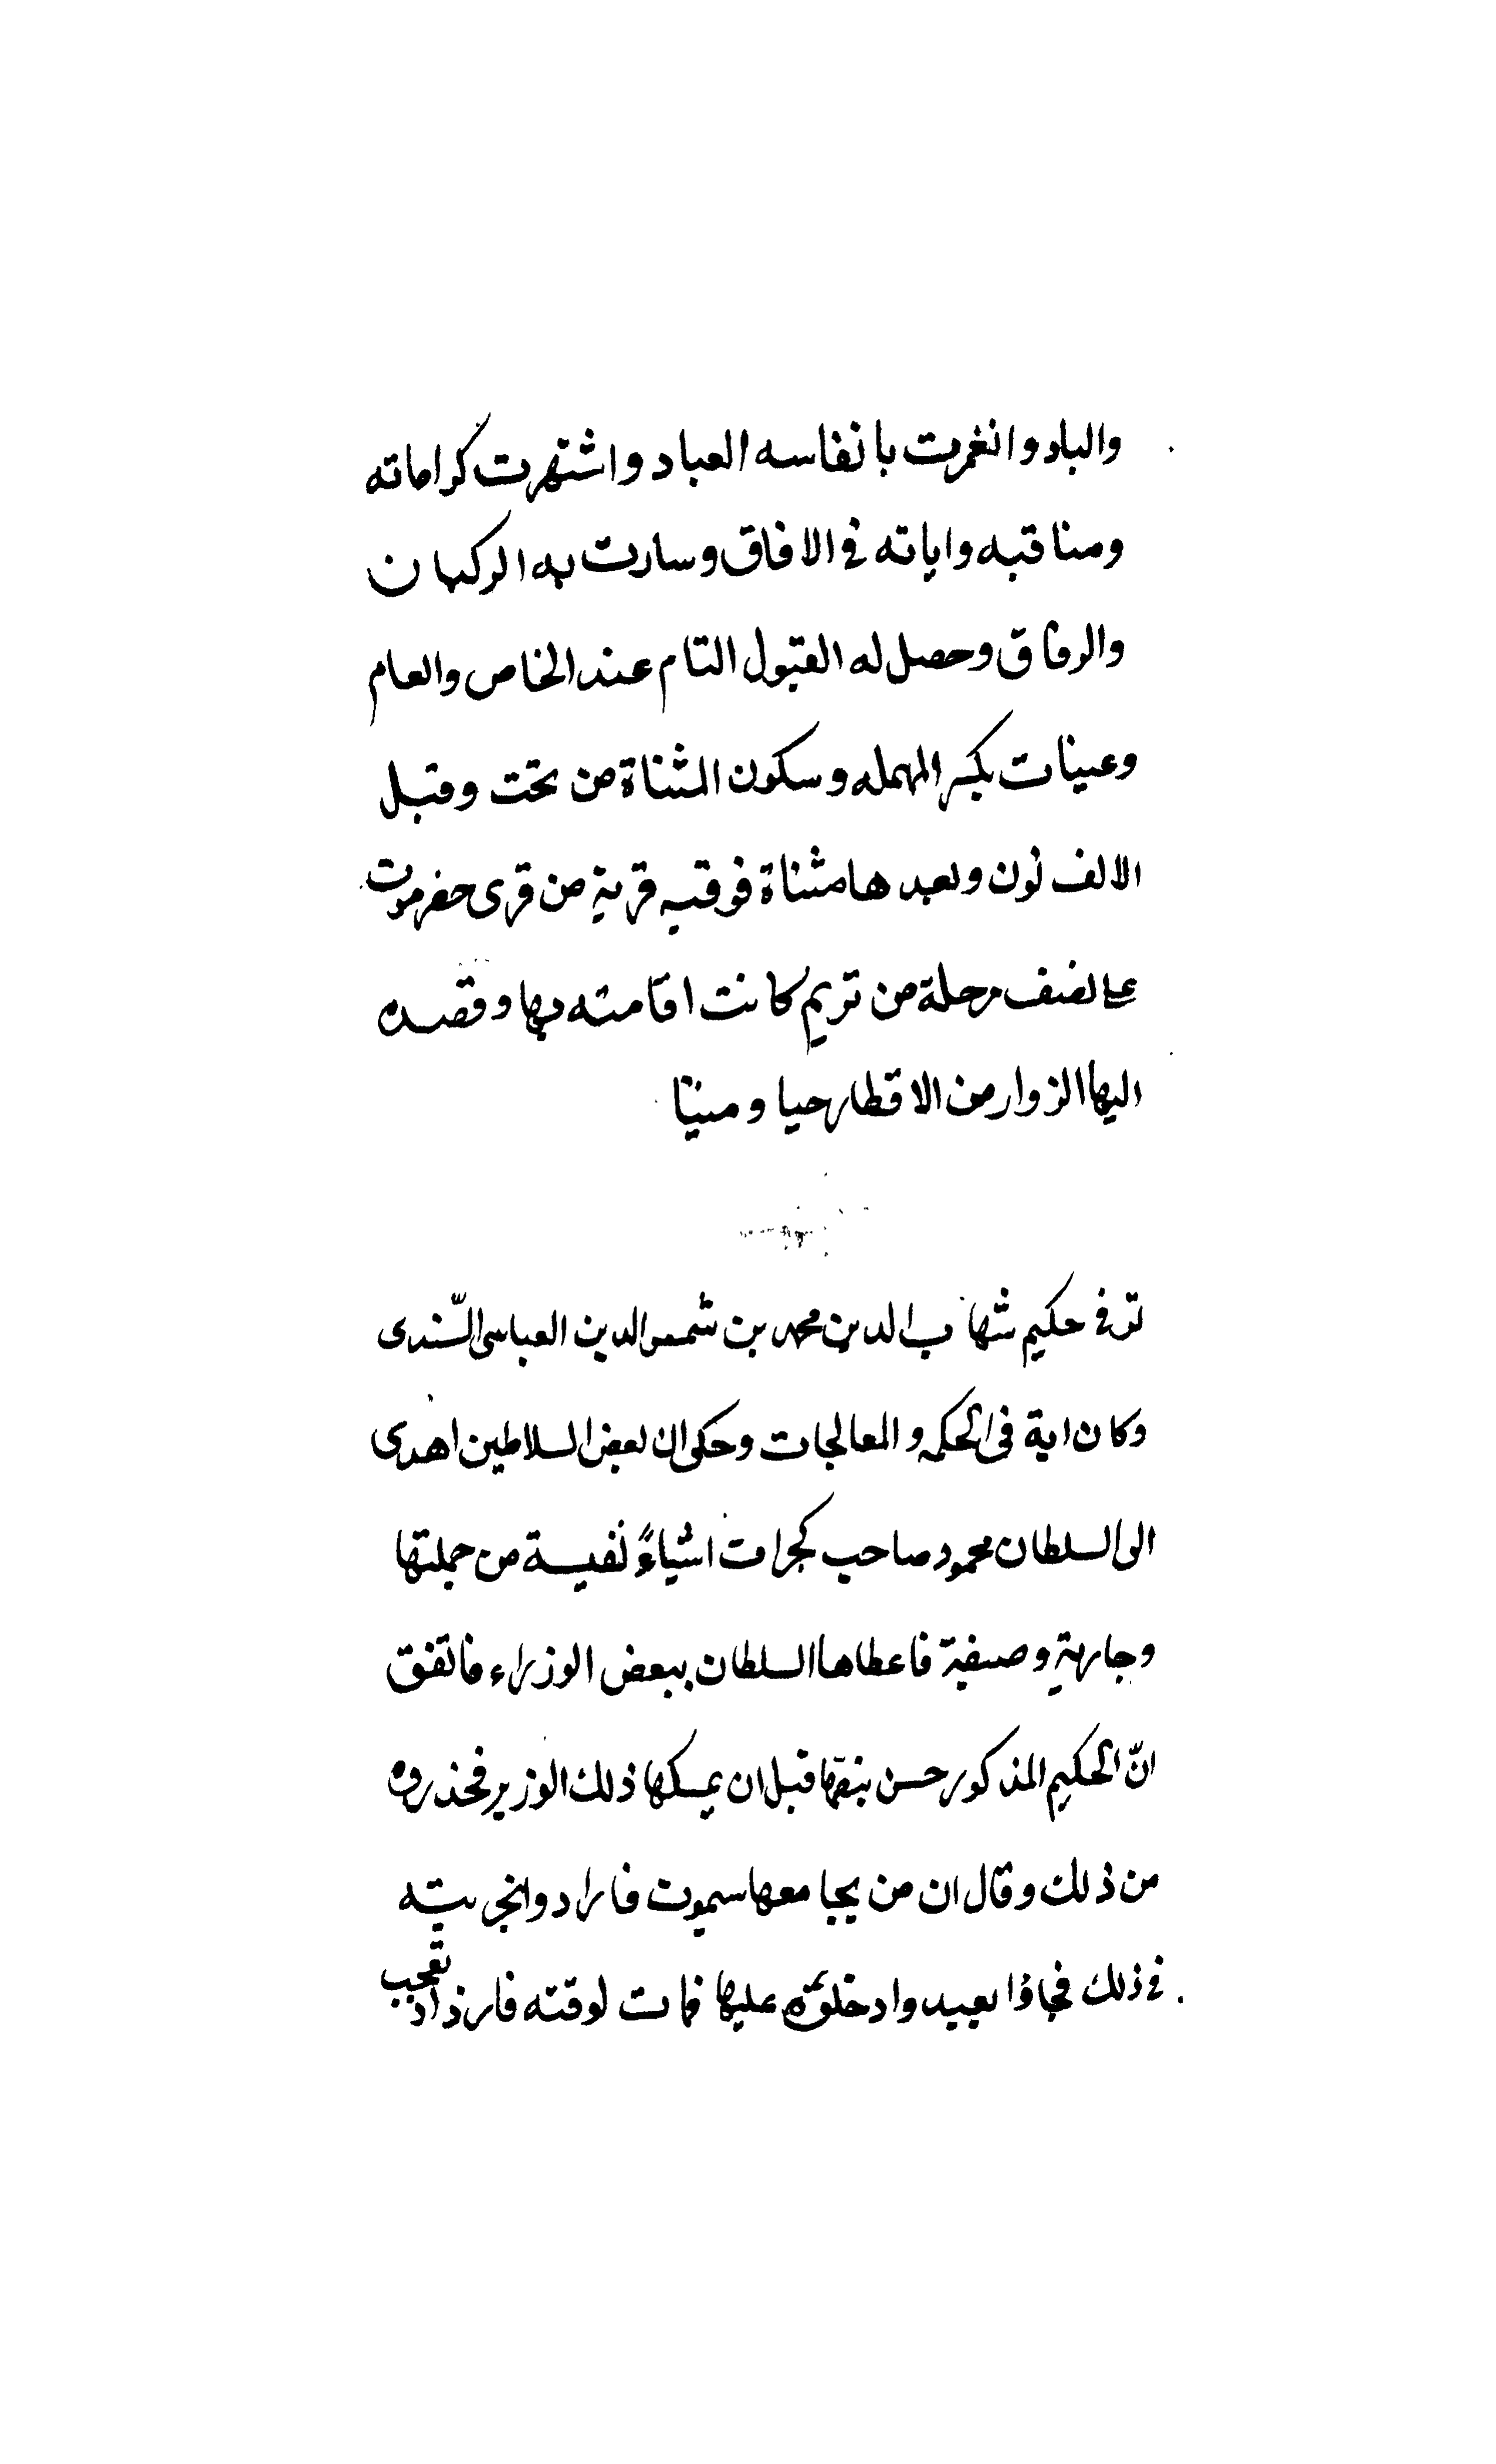 والباد وانغمرت بانفاسه العباد واشتهرت كراماته
ومناقبه واياته في الافاق وسارت به الركبان
والرفاق وحصل له القبول التام عند الخاص والعام
وعينات بكسر المهمله وسكون المثناة من تحت وقبل
الالف نون وبعدها مثناة فوقيه قرية من قرى حضرموت
على نصف مرحلة من تريم كانت اقامته بها وقصده
اليها الزوار من الاقطار حيا وميتا
توفي حكيم شهاب الدين محمد بن شمس الدين العباسي السّندي
وكان اية في الحكمه والمعالجات وحكى ان بعض السلاطين اهدى
الى السلطان محمود صاحب كجرات اشياءً نفيسة من جملتها
وجارية وصيفة فاعطاها السلطان ببعض الوزراء فاتفق
انّ الحكيم المذكور حسن قبل ان يمسكها ذلك الوزير فحذروه
من ذلك وقال ان من يجامعها سيموت فارادوا تجربته
في ذلك فجاؤا بعبد وادخلوه عليها فمات لوقته فازداد تعجب